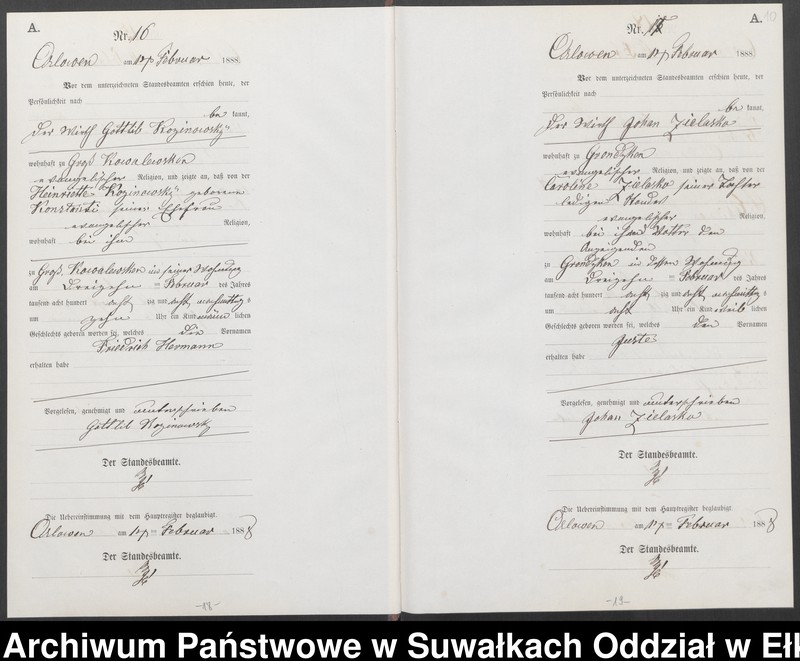 A.
Nr. 16
Orlowen am Februar 1888.
Vor dem unterzeichneten Standesbeamten erschien heute, der
Persönlichkeit nach
be kannt,
der Wirth Gottlib Koginowsky
wohnhaft zu Groß Kowalewsken
evangelischer Religion, und zeigte an, daß von der
Heinriette Koginowsky geborene
Konstanti seiner Ehefrau
evangelischer Religion,
wohnhaft bei ihm
zu Groß Kowalewsken in seiner Wohnung
am dreizehn ten Februar des Jahres
tausend acht hundert acht zig und acht nachmittag s
um zehn Uhr ein Kind männ lichen
Geschlechts geboren worden sei, welches die Vornamen
Friedrich Hermann
erhalten habe
Vorgelesen, genehmigt und unterschrieben
Gottlib Koginowsky
Der Standesbeamte.
Die Uebereinstimmung mit dem Hauptregister beglaubigt.
Orlowen am Februar 1888
Der Standesbeamte.
-18-
A.
10
Nr.
Orlowen am Februar 1888.
Vor dem unterzeichneten Standesbeamten erschien heute, der
Persönlichkeit nach
be kannt,
der Wirth Johan Zielaska
wohnhaft zu Grondzken
evangelischer Religion, und zeigte an, daß von der
Caroline Zielaska seiner Tochter
ledigen Standes
evangelischer Religion,
wohnhaft bei ihrem Vatter den
Anzeigenden
zu Grondzken in dessen Wohnung
am dreizehn ten Februar des Jahres
tausend acht hundert acht zig und acht nachmittag s
um acht Uhr ein Kind weib lichen
Geschlechts geboren worden sei, welches den Vornamen
Juste
erhalten habe
Vorgelesen, genehmigt und unterschrieben
Johan Zielaska
Der Standesbeamte.
Die Uebereinstimmung mit dem Hauptregister beglaubigt.
Orlowen am Februar 1888
Der Standesbeamte.
-19-
Archiwum Państwowe w Suwałkach Oddział w Ełk